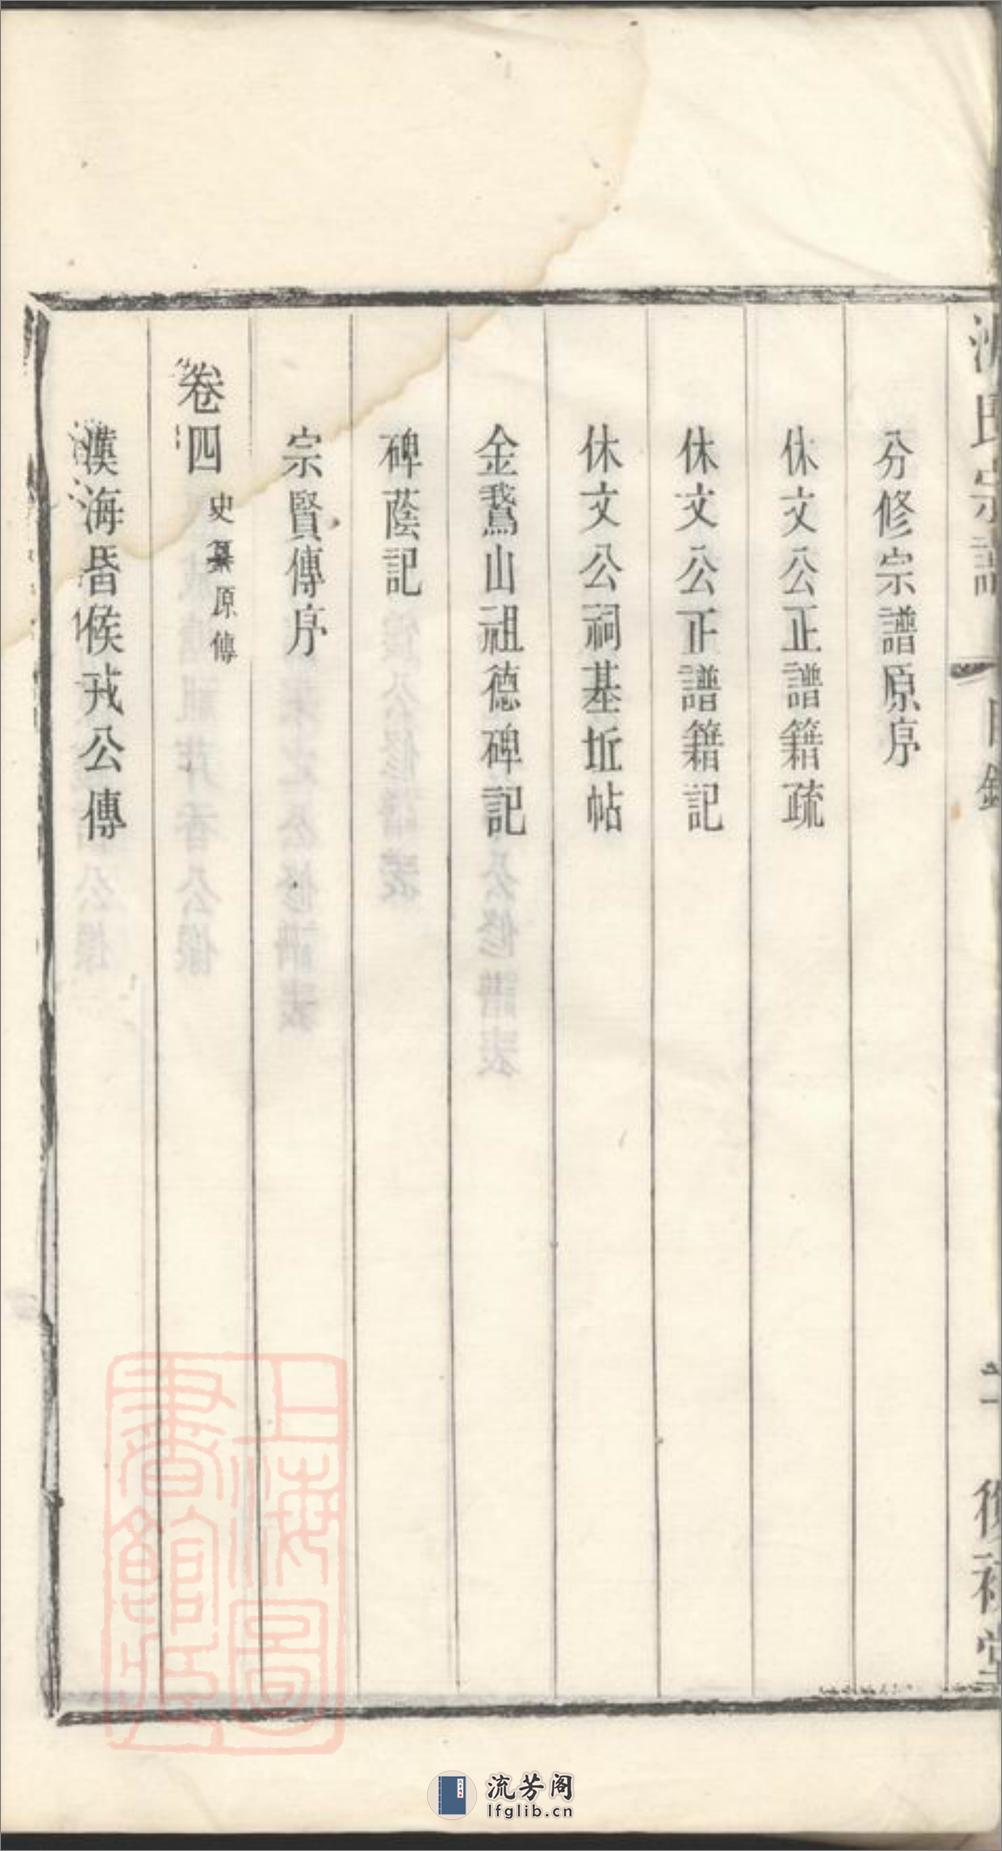 沈氏宗譜
目錄
分修宗譜原序
休文公正譜籍疏
休文公正譜籍記
休文公祠基坵帖
金鵞山祖德碑記
碑蔭記
宗賢傳序
卷四 史纂原傳
漢海昏侯戎公傳
上海圖書館藏
流芳阁
lfglib.cn